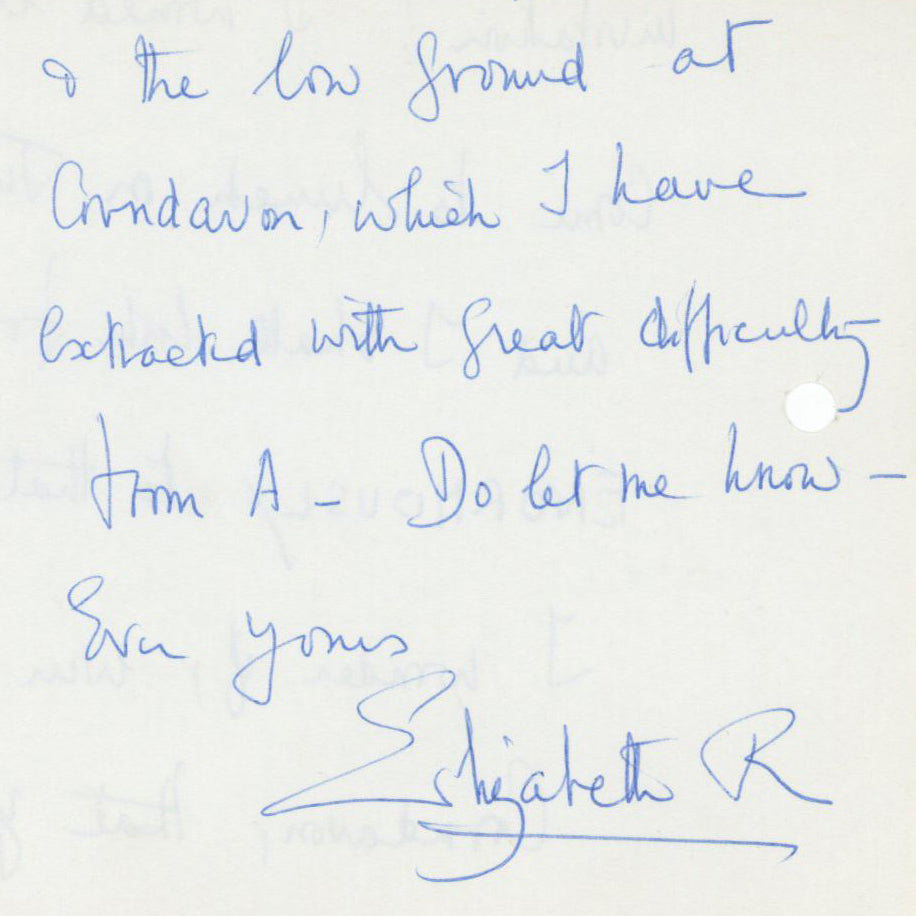 & the low ground at
Corndavon, which I have
extracted with great difficulty
from A – Do let me know –
Ever yours
Elizabeth R